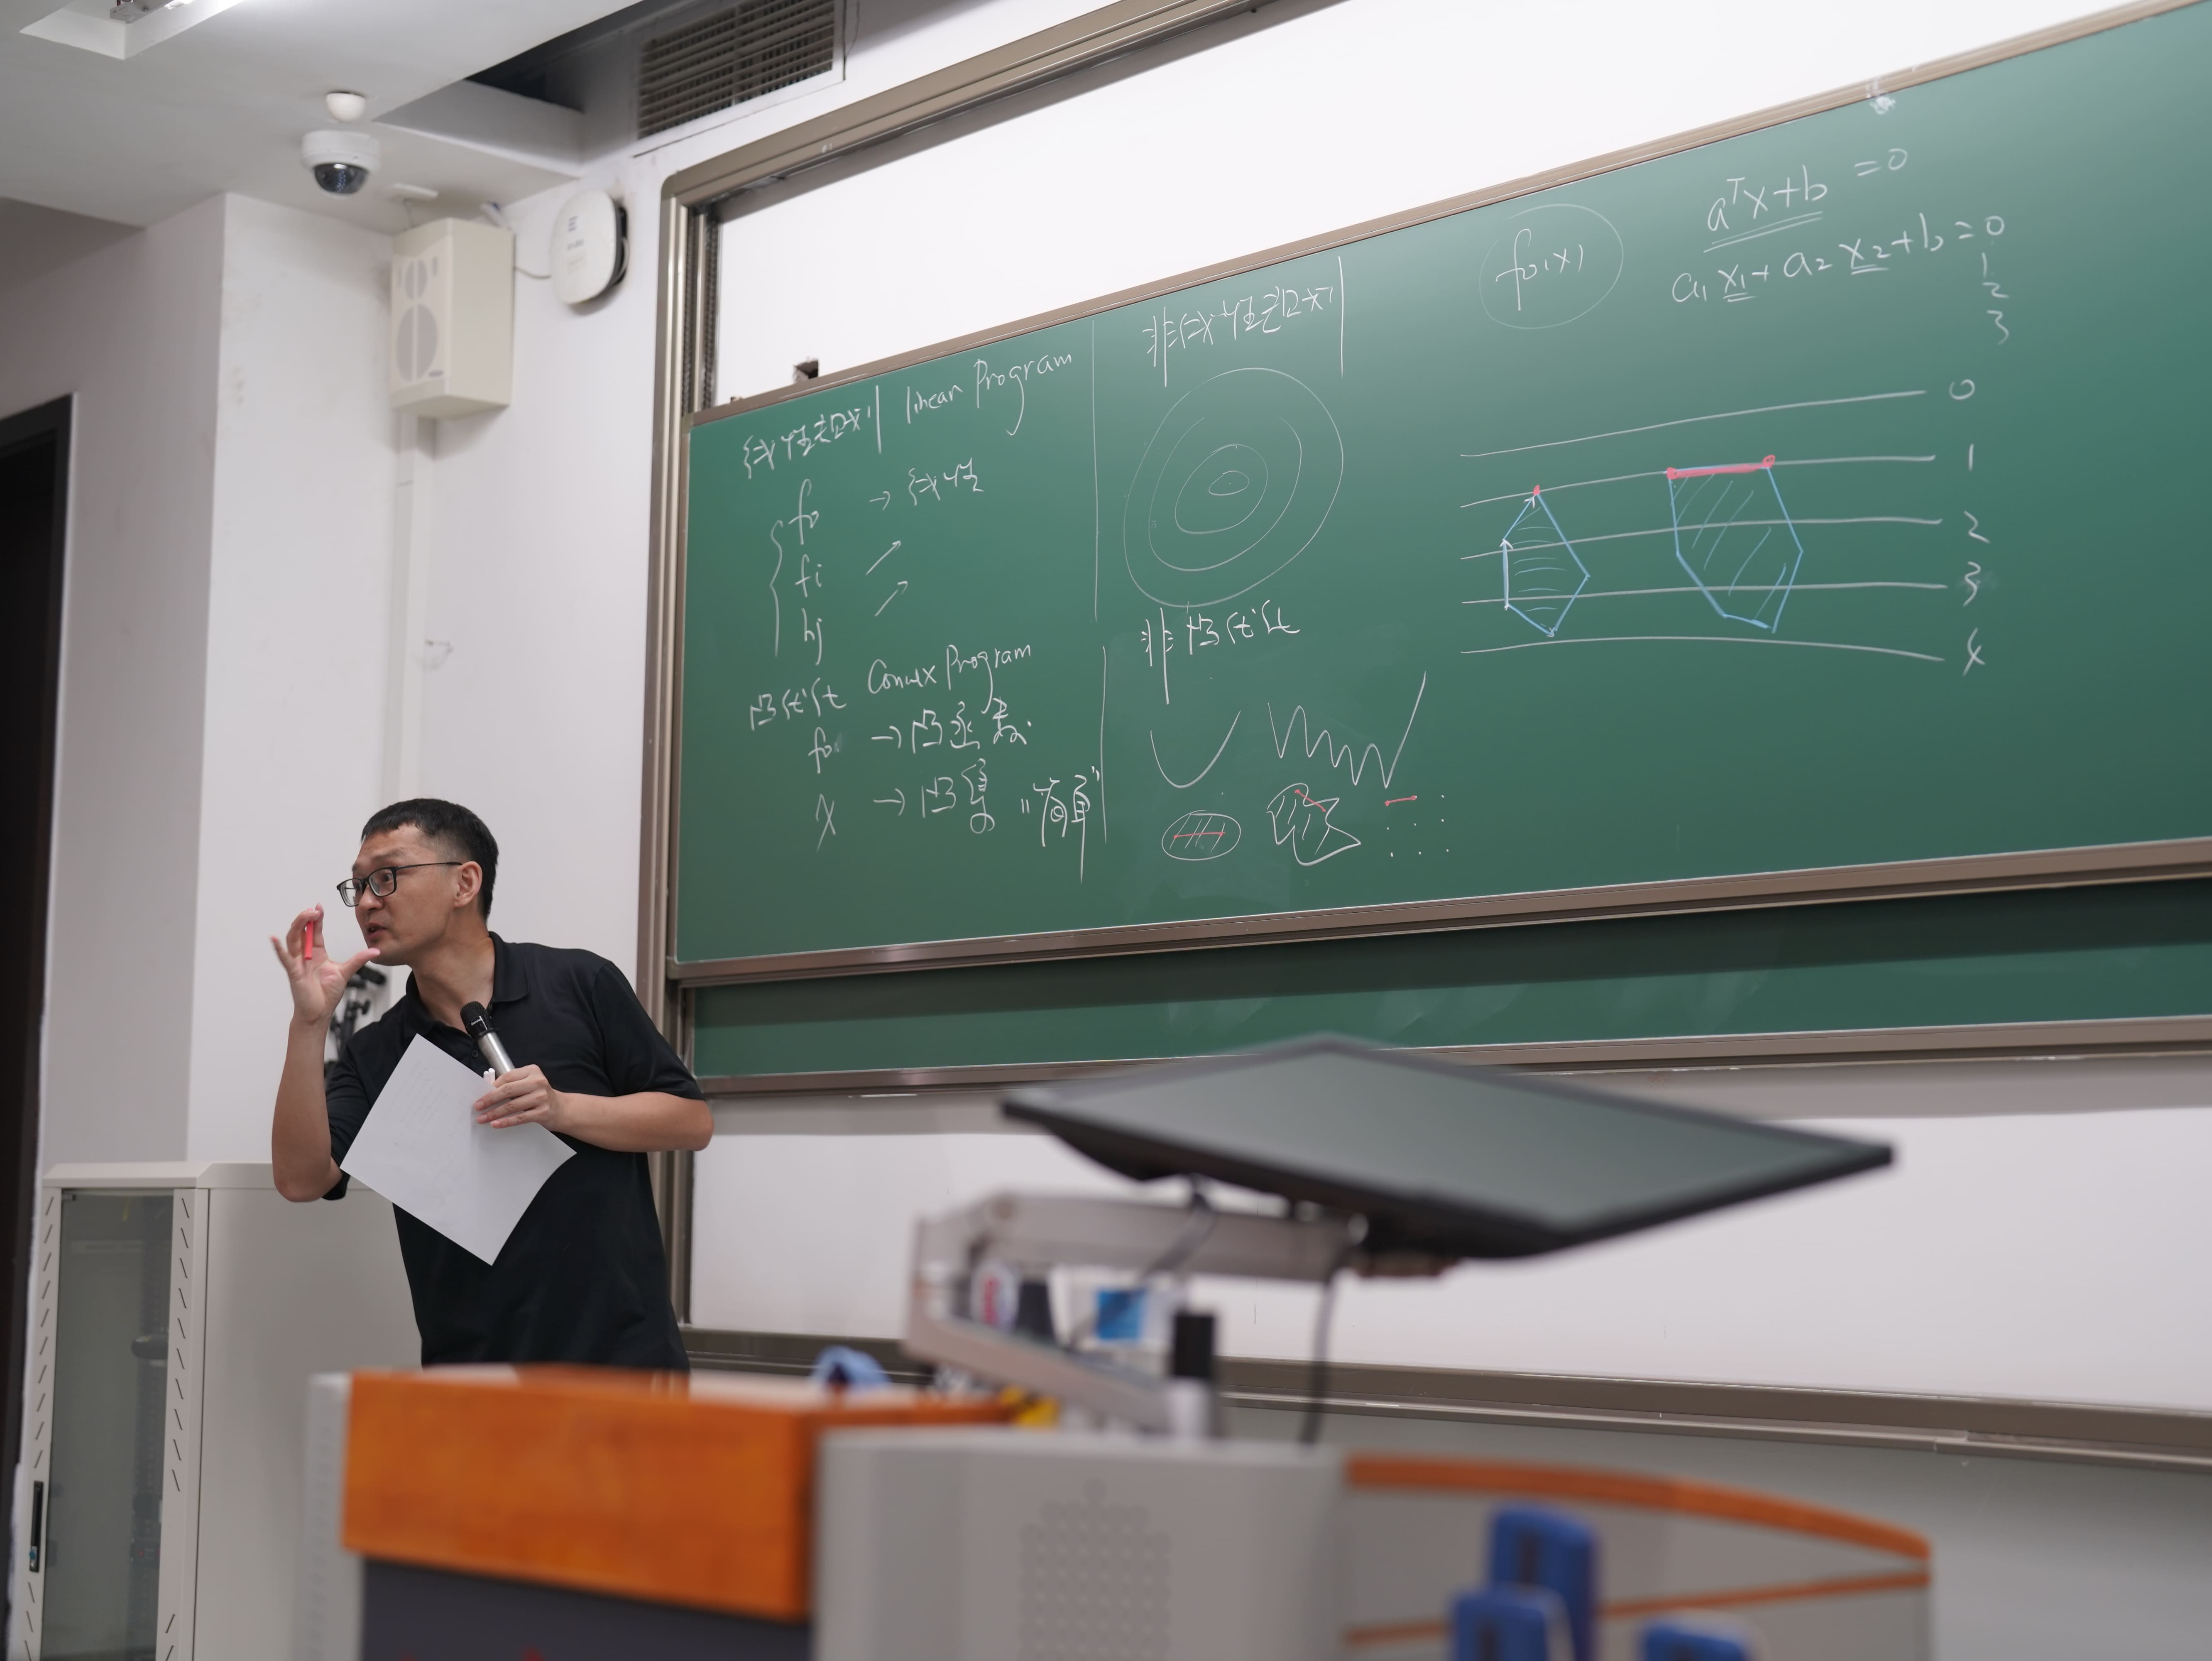 线性规划 linear Program
f₀ → 线性
fi ↗
hj ↗
凸优化 Convex Program
f₀ → 凸函数
X → 凸集 "简单"
非线性规划
非凸优化
f₀(x)
aᵀx+b =0
a₁x₁+a₂x₂+b=0
1
2
3
0
1
2
3
4